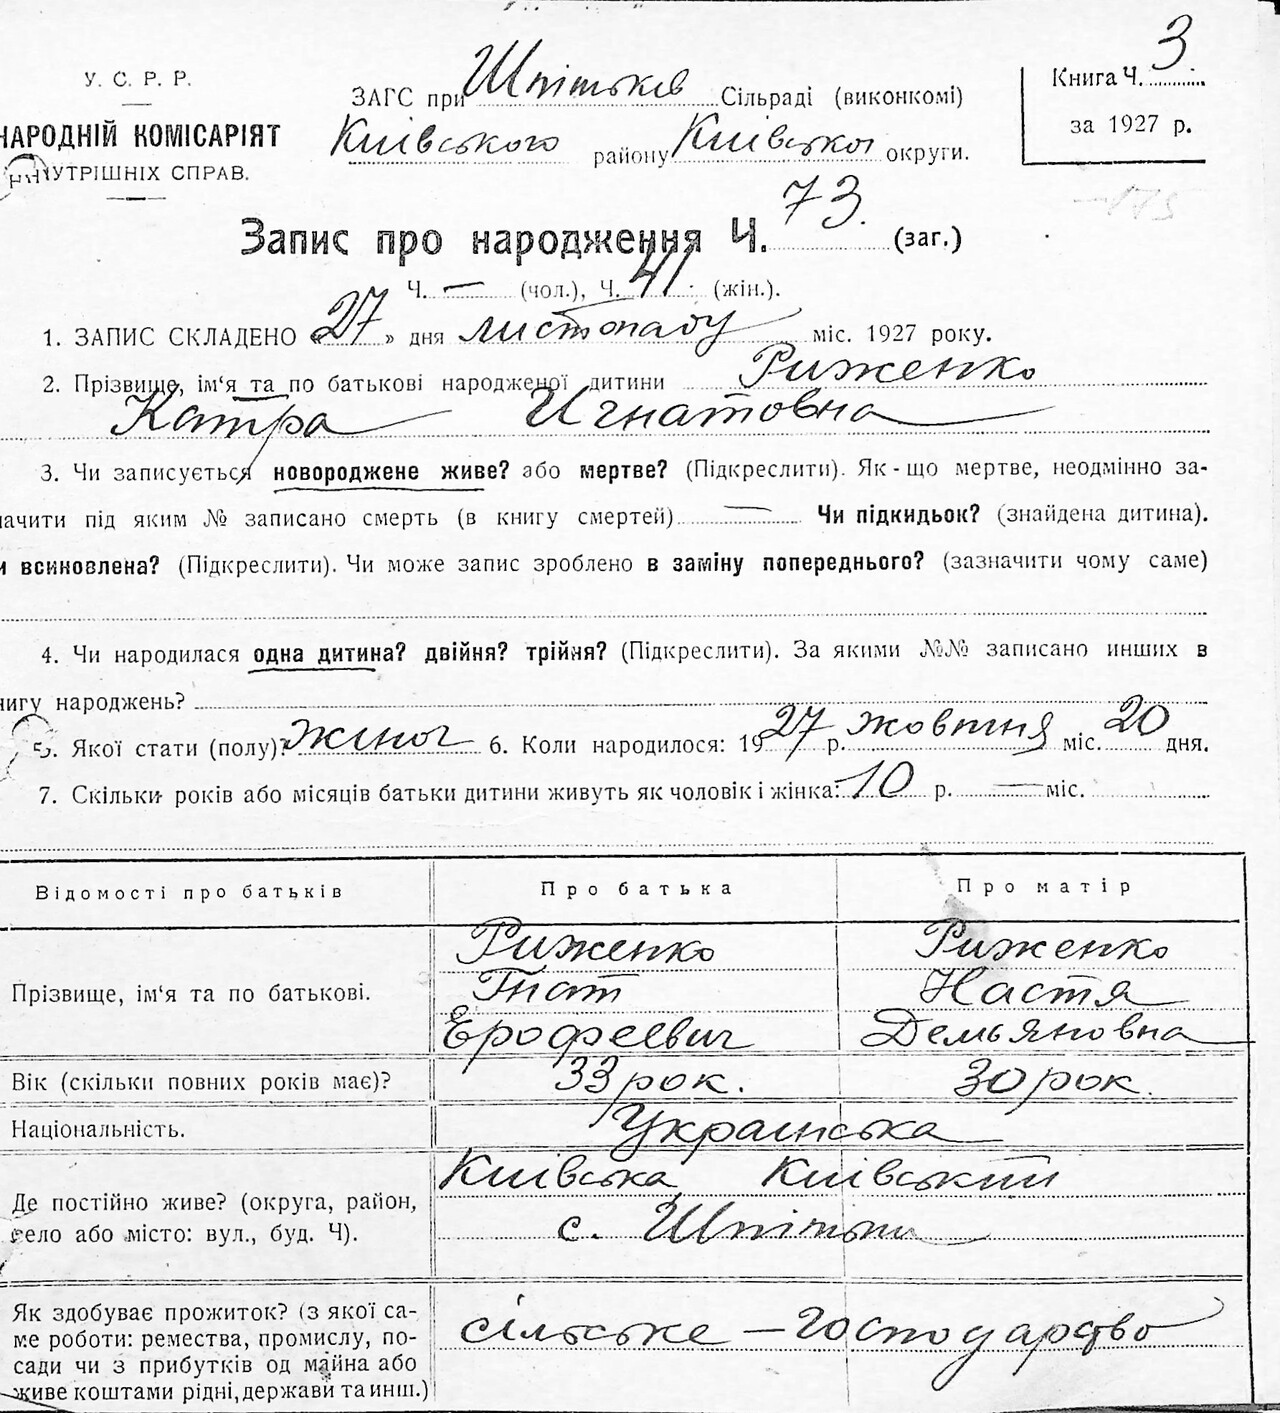 У. С. Р. Р.
НАРОДНІЙ КОМІСАРІЯТ
ВНУТРІШНІХ СПРАВ.
ЗАГС при Шпітьків Сільраді (виконкомі)
Київського району Київської округи.
Книга Ч. 3
за 1927 р.
Запис про народження Ч. 73. (заг.)
Ч. — (чол.), Ч. 41 (жін.).
1. ЗАПИС СКЛАДЕНО «27» дня листопаду міс. 1927 року.
2. Прізвище, ім‘я та по батькові народженої дитини Риженко
Катра Игнатовна
3. Чи записується новороджене живе? або мертве? (Підкреслити). Як-що мертве, неодмінно за-
начити під яким № записано смерть (в книгу смертей) — Чи підкидьок? (знайдена дитина).
и всиновлена? (Підкреслити). Чи може запис зроблено в заміну попереднього? (зазначити чому саме)
4. Чи народилася одна дитина? двійня? трійня? (Підкреслити). За якими №№ записано инших в
нигу народжень?
5. Якої стати (полу)? жіноч 6. Коли народилося: 1927 р. жовтня міс. 20 дня.
7. Скільки років або місяців батьки дитини живуть як чоловік і жінка: 10 р. — міс.
Відомості про батьків Про батька Про матір
Прізвище, ім‘я та по батькові.
Риженко Риженко
Гнат Настя
Ерофеевич Демьяновна
Вік (скільки повних років має)? 33 рок. 30 рок.
Національність. Українська
Де постійно живе? (округа, район,
село або місто: вул., буд. Ч).
Київська Київський
с. Шпітьки
Як здобуває прожиток? (з якої са-
ме роботи: ремества, промислу, по-
сади чи з прибутків од майна або
живе коштами рідні, держави та инш.)
сільське — господарство